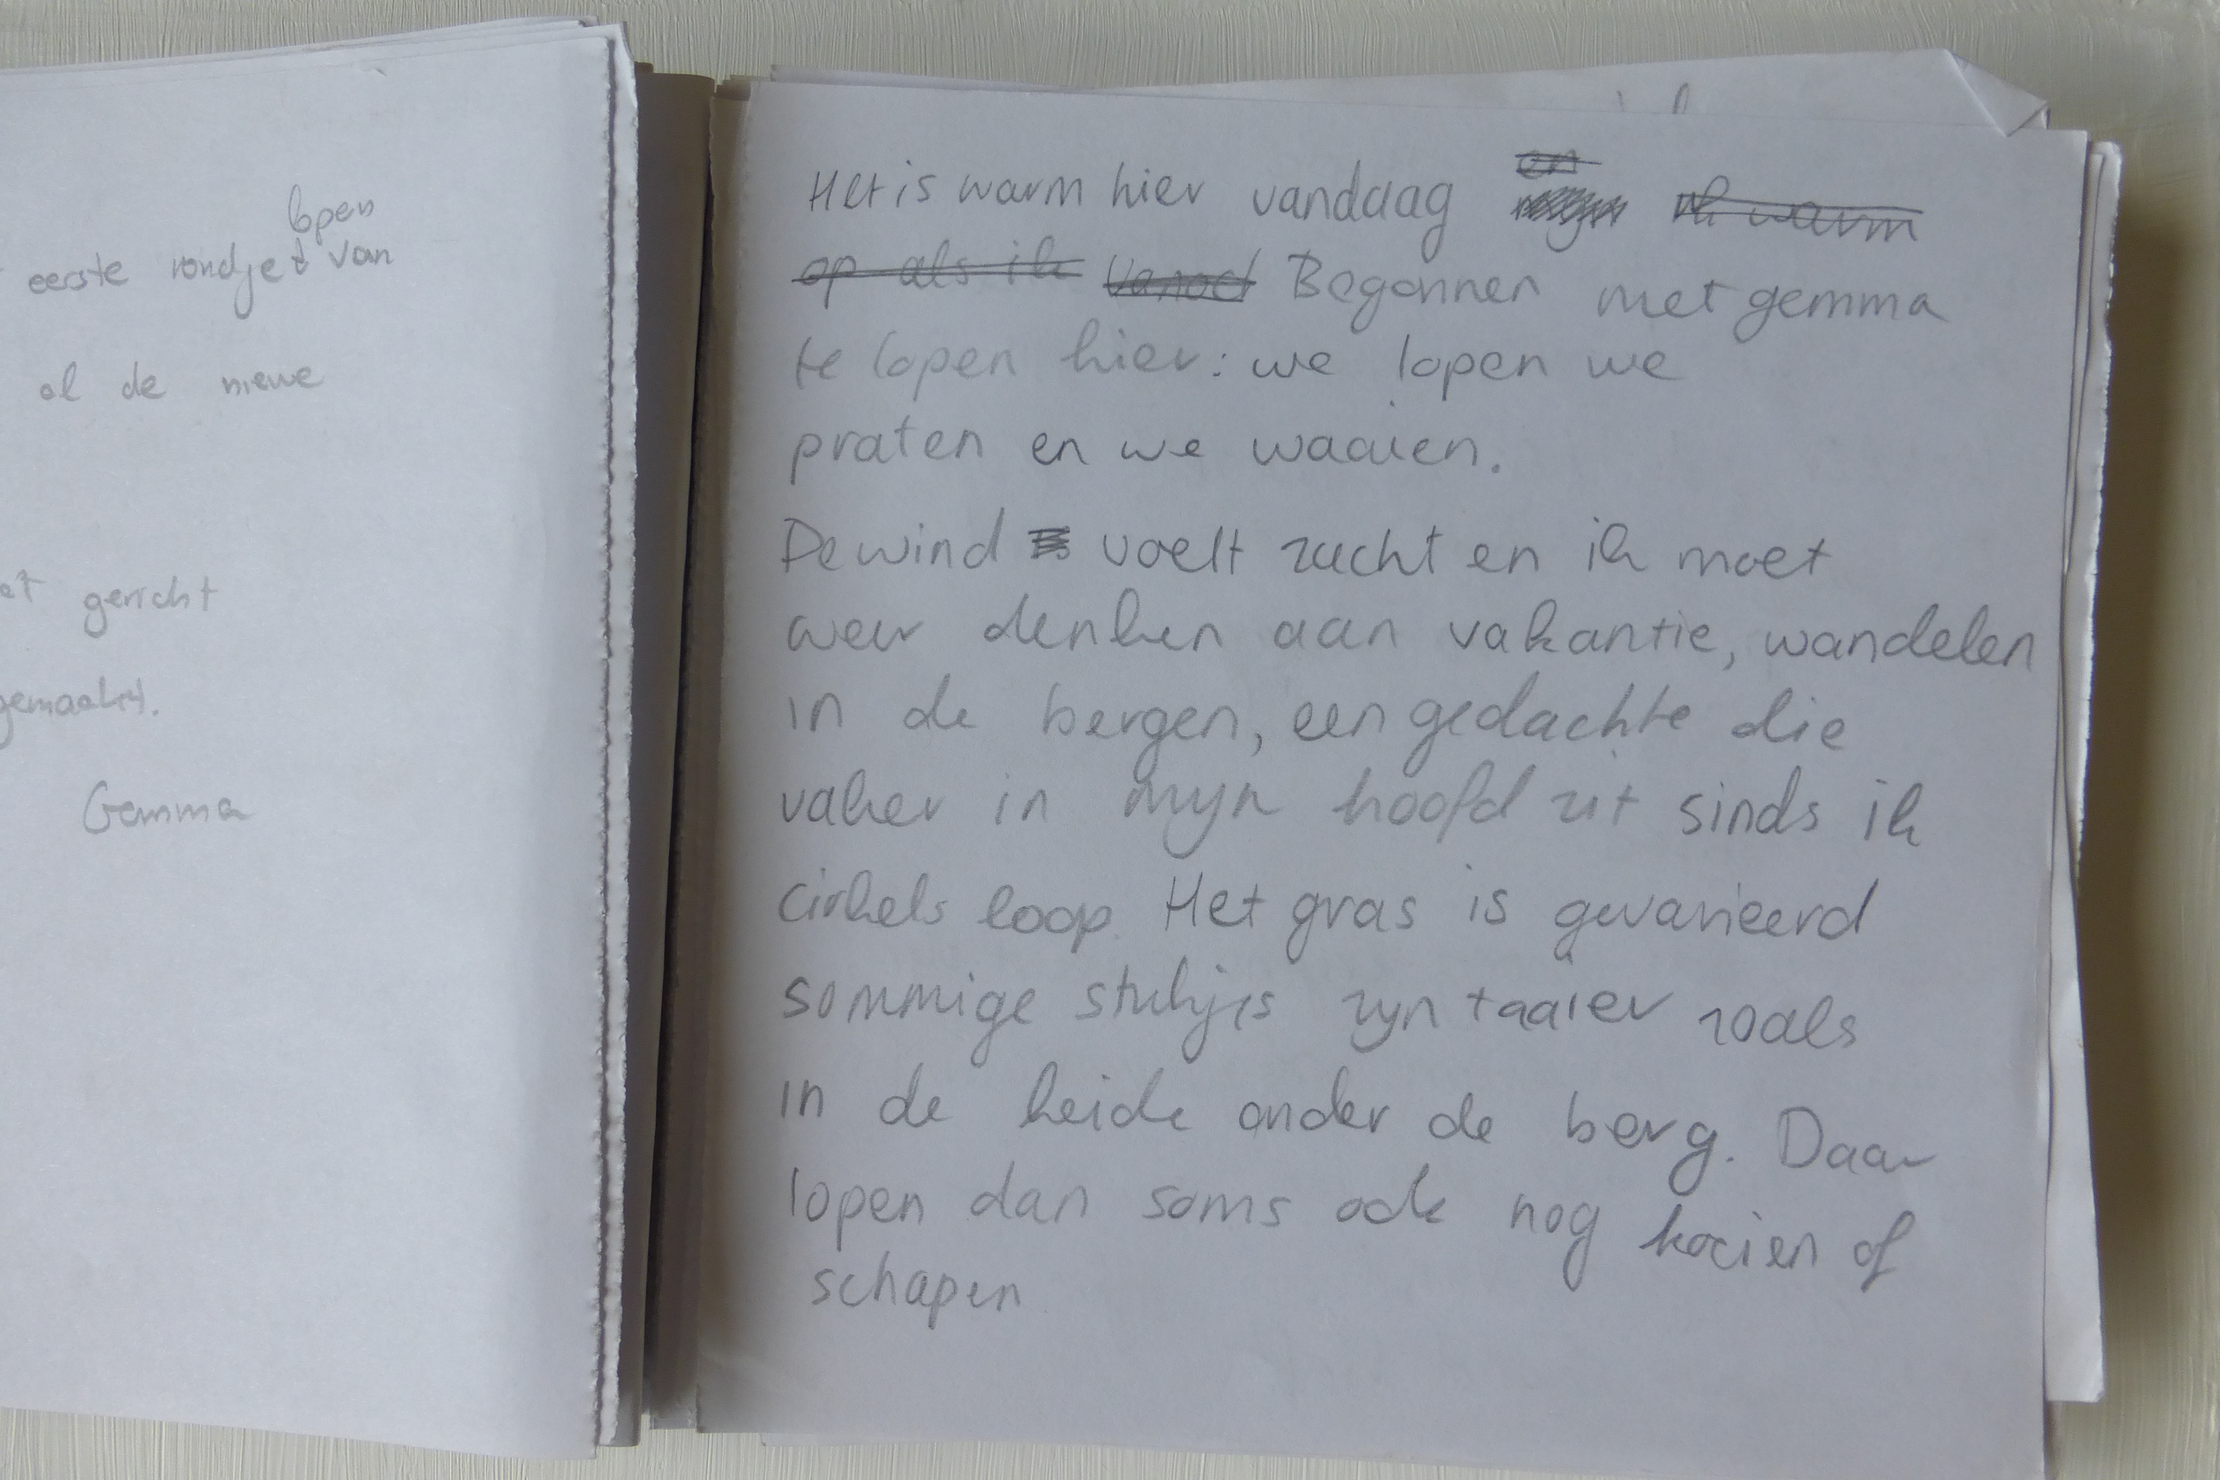 lopen
eerste rondjet van
al de nieuwe
gericht
gemaakt.
Gemma
Het is warm hier vandaag en ik warm
op als ik vanoct Begonnen met gemma
te lopen hier: we lopen we
praten en we waaien.
De wind voelt zacht en ik moet
weer denken aan vakantie, wandelen
in de bergen, een gedachte die
vaker in mijn hoofd zit sinds ik
cirkels loop. Het gras is gevarieerd
sommige stukjes zijn taaier zoals
in de heide onder de berg. Daar
lopen dan soms ook nog koeien of
schapen